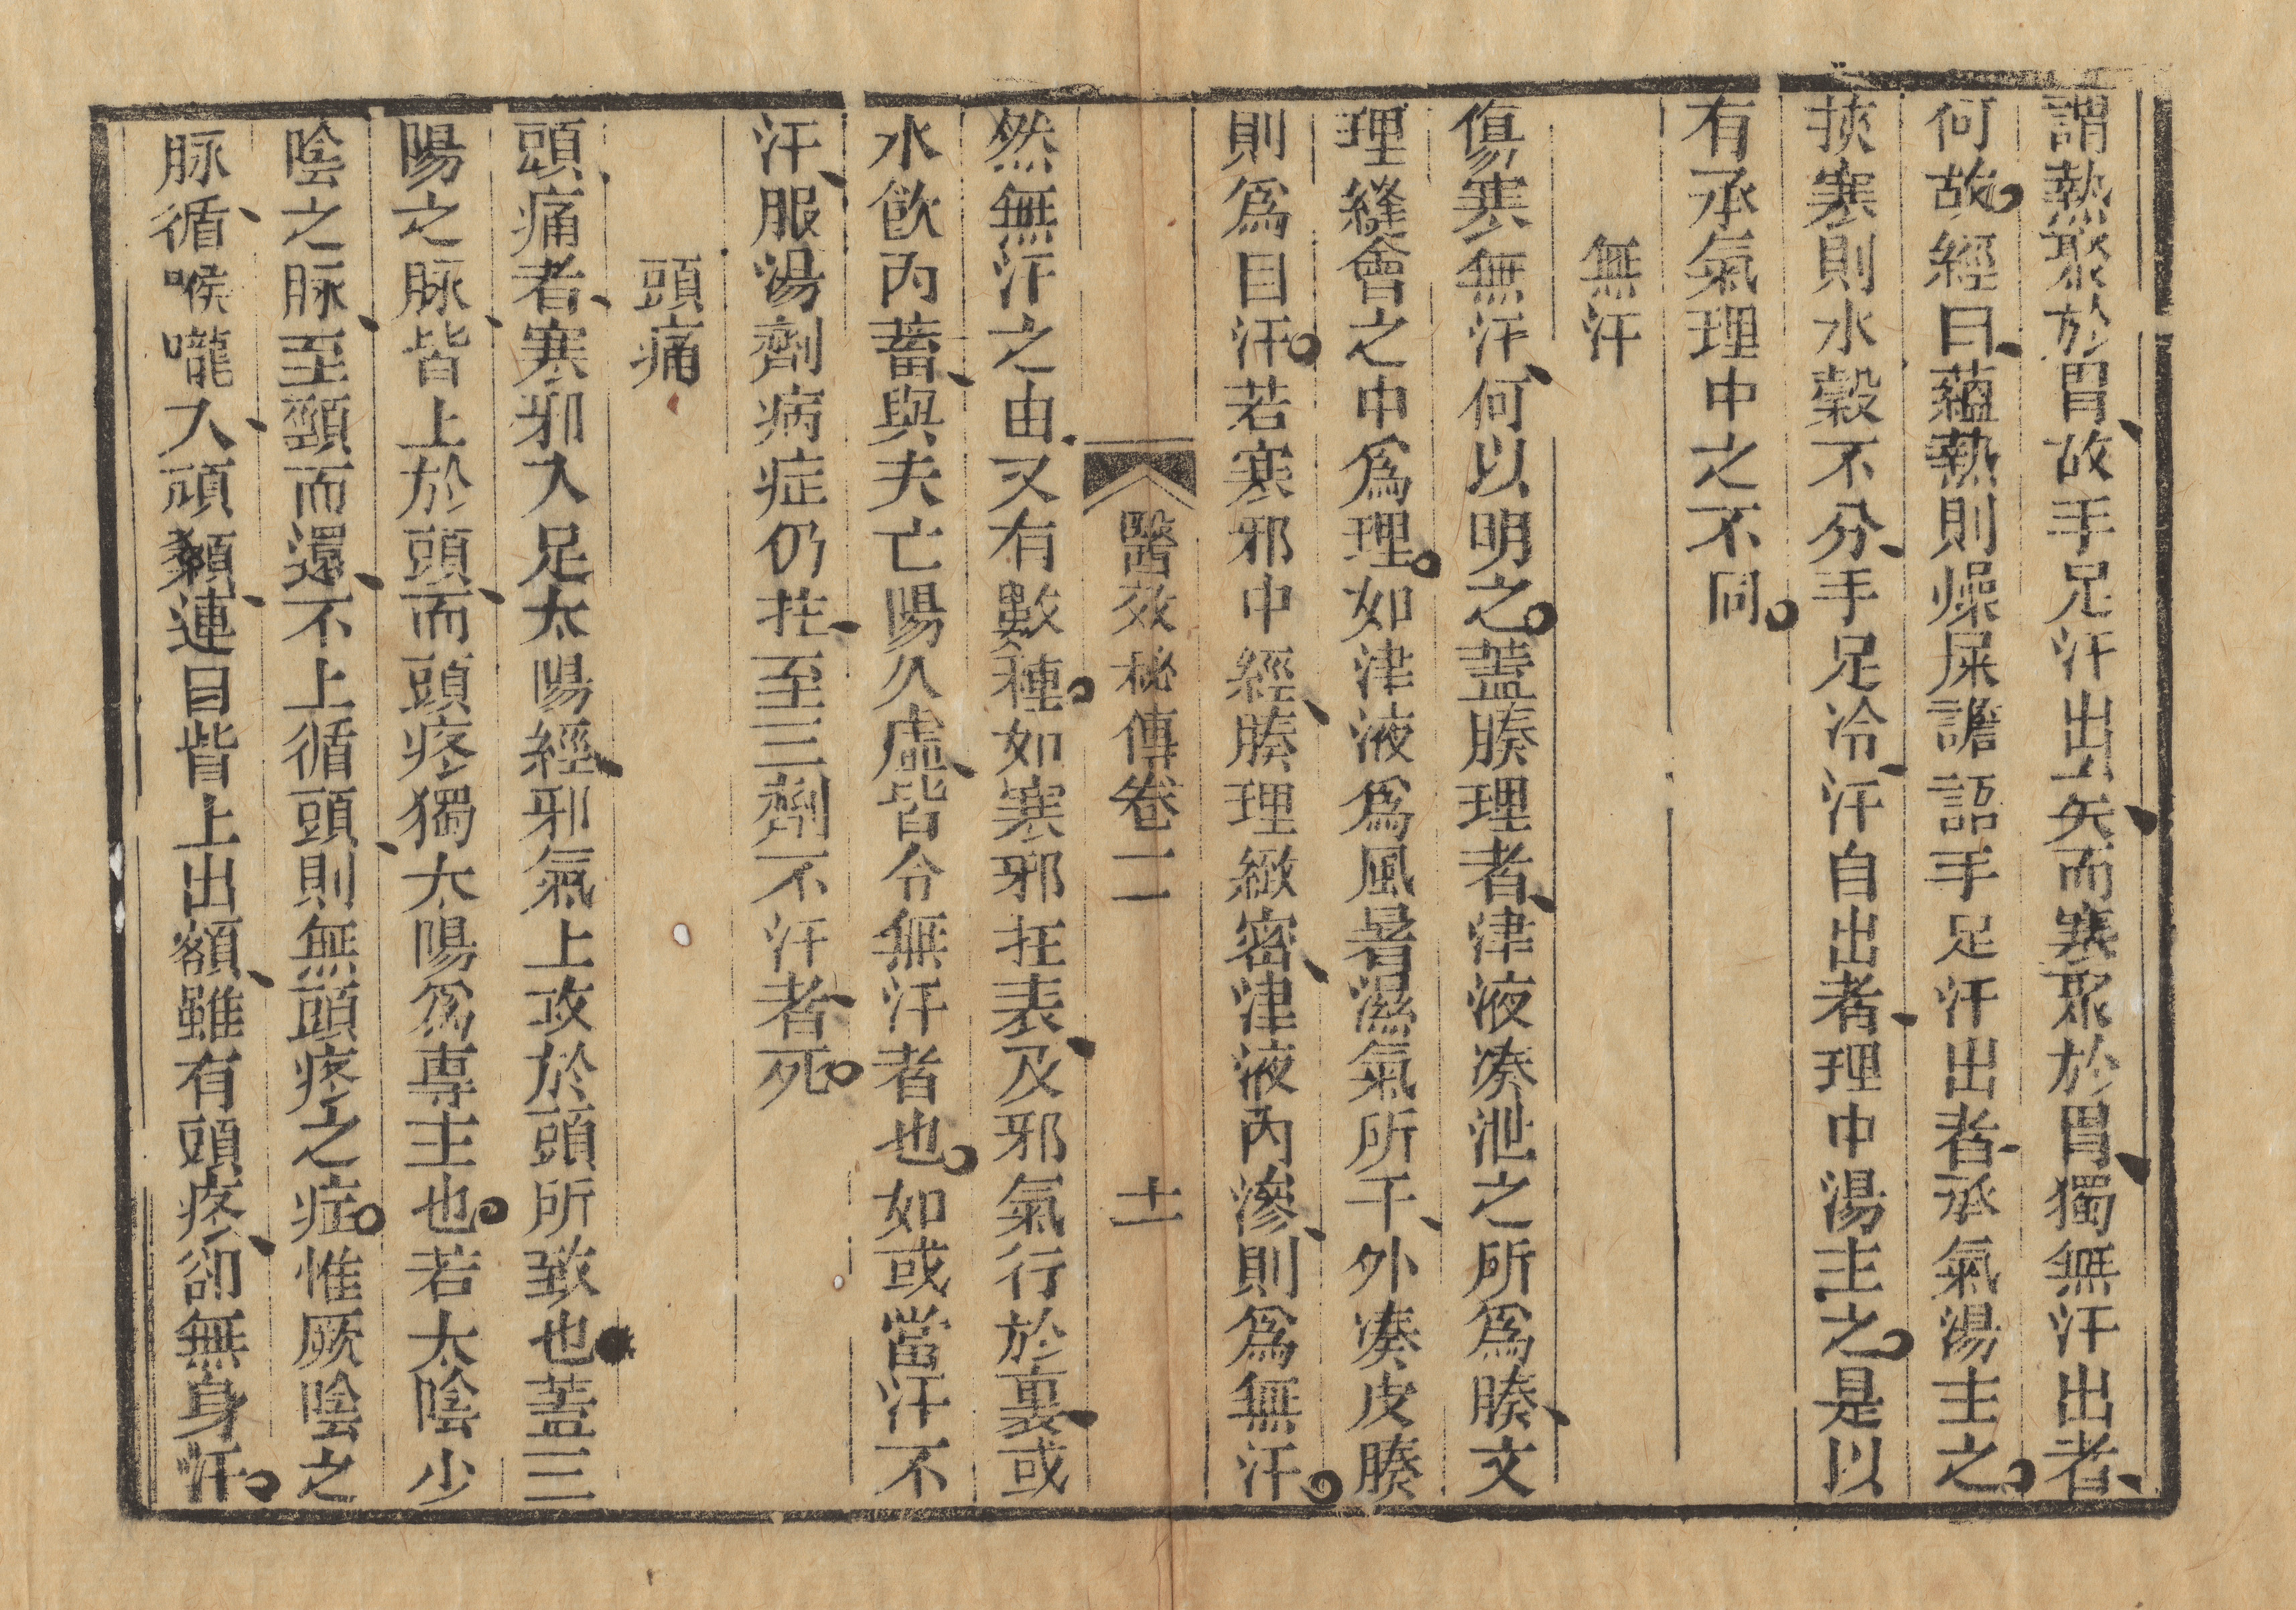 謂熱聚於胃、故手足汗出矣、而寒聚於胃、獨無汗出者、
何故。經曰、蘊熱則燥屎譫語手足汗出者、承氣湯主之。
挾寒則水穀不分、手足冷、汗自出者、理中湯主之。是以
有承氣理中之不同。
無汗
傷寒無汗、何以明之。蓋腠理者、津液凑泄之所爲腠、文
理縫會之中爲理。如津液爲風暑濕氣所干、外凑皮腠
則爲自汗。若寒邪中經、腠理緻密、津液內滲、則爲無汗。
醫效秘傳卷二 十一
然無汗之由、又有數種。如寒邪在表、及邪氣行於裏、或
水飲內蓄、與夫亡陽久虛、皆令無汗者也。如或當汗不
汗、服湯劑病症仍在、至三劑不汗者、死。
頭痛
頭痛者、寒邪入足太陽經、邪氣上攻於頭所致也。蓋三
陽之脉、皆上於頭、而頭疼獨太陽爲專主也。若太陰少
陰之脉、至頸而還、不上循頭、則無頭疼之症。惟厥陰之
脉、循喉嚨、入頏顙、連目眥上出額、雖有頭疼、卻無身汗。